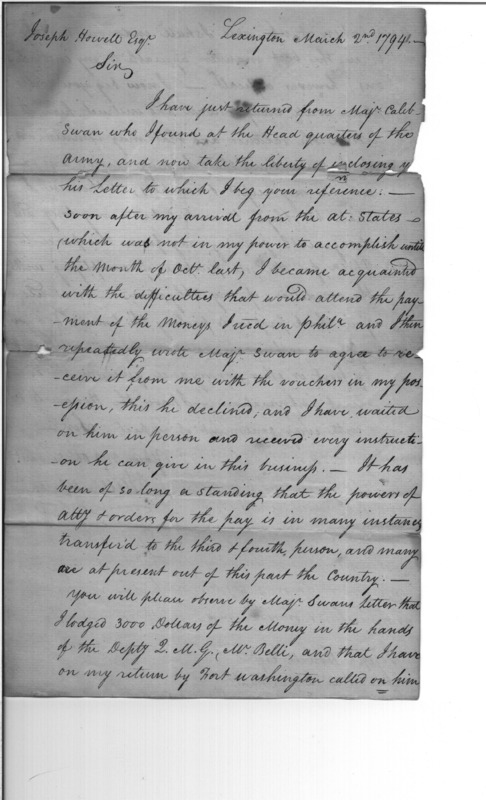 Joseph Howell Esqr. Lexington March 2nd 1794.—
Sir,
I have just returned from Majr. Caleb-
Swan who I found at the Head quarters of the
Army, and now take the liberty of inclosing y
his Letter to which I beg your reference. —
Soon after my arrival from the At: States —
which was not in my power to accomplish until
the Month of Octr. last, I became acquainted
with the difficulties that would attend the pay-
-ment of the Moneys I recd in Phila and I then
repeatedly wrote Majr. Swan to agree to re-
-ceive it from me with the vouchers in my pos-
-ession, this he declined, and I have waited
on him in person and received every instructi-
-on he can give in this business. — It has
been of so long a standing that the powers of
atty & orders for the pay is in many instances
transfer'd to the third & fourth person, and many
are at present out of this part the Country. —
You will please observe by Majr. Swans letter that
I lodged 3000 Dollars of the Money in the hands
of the Depty Q. M. G., Mr. Belli, and that I have
on my return by Fort Washington called on him